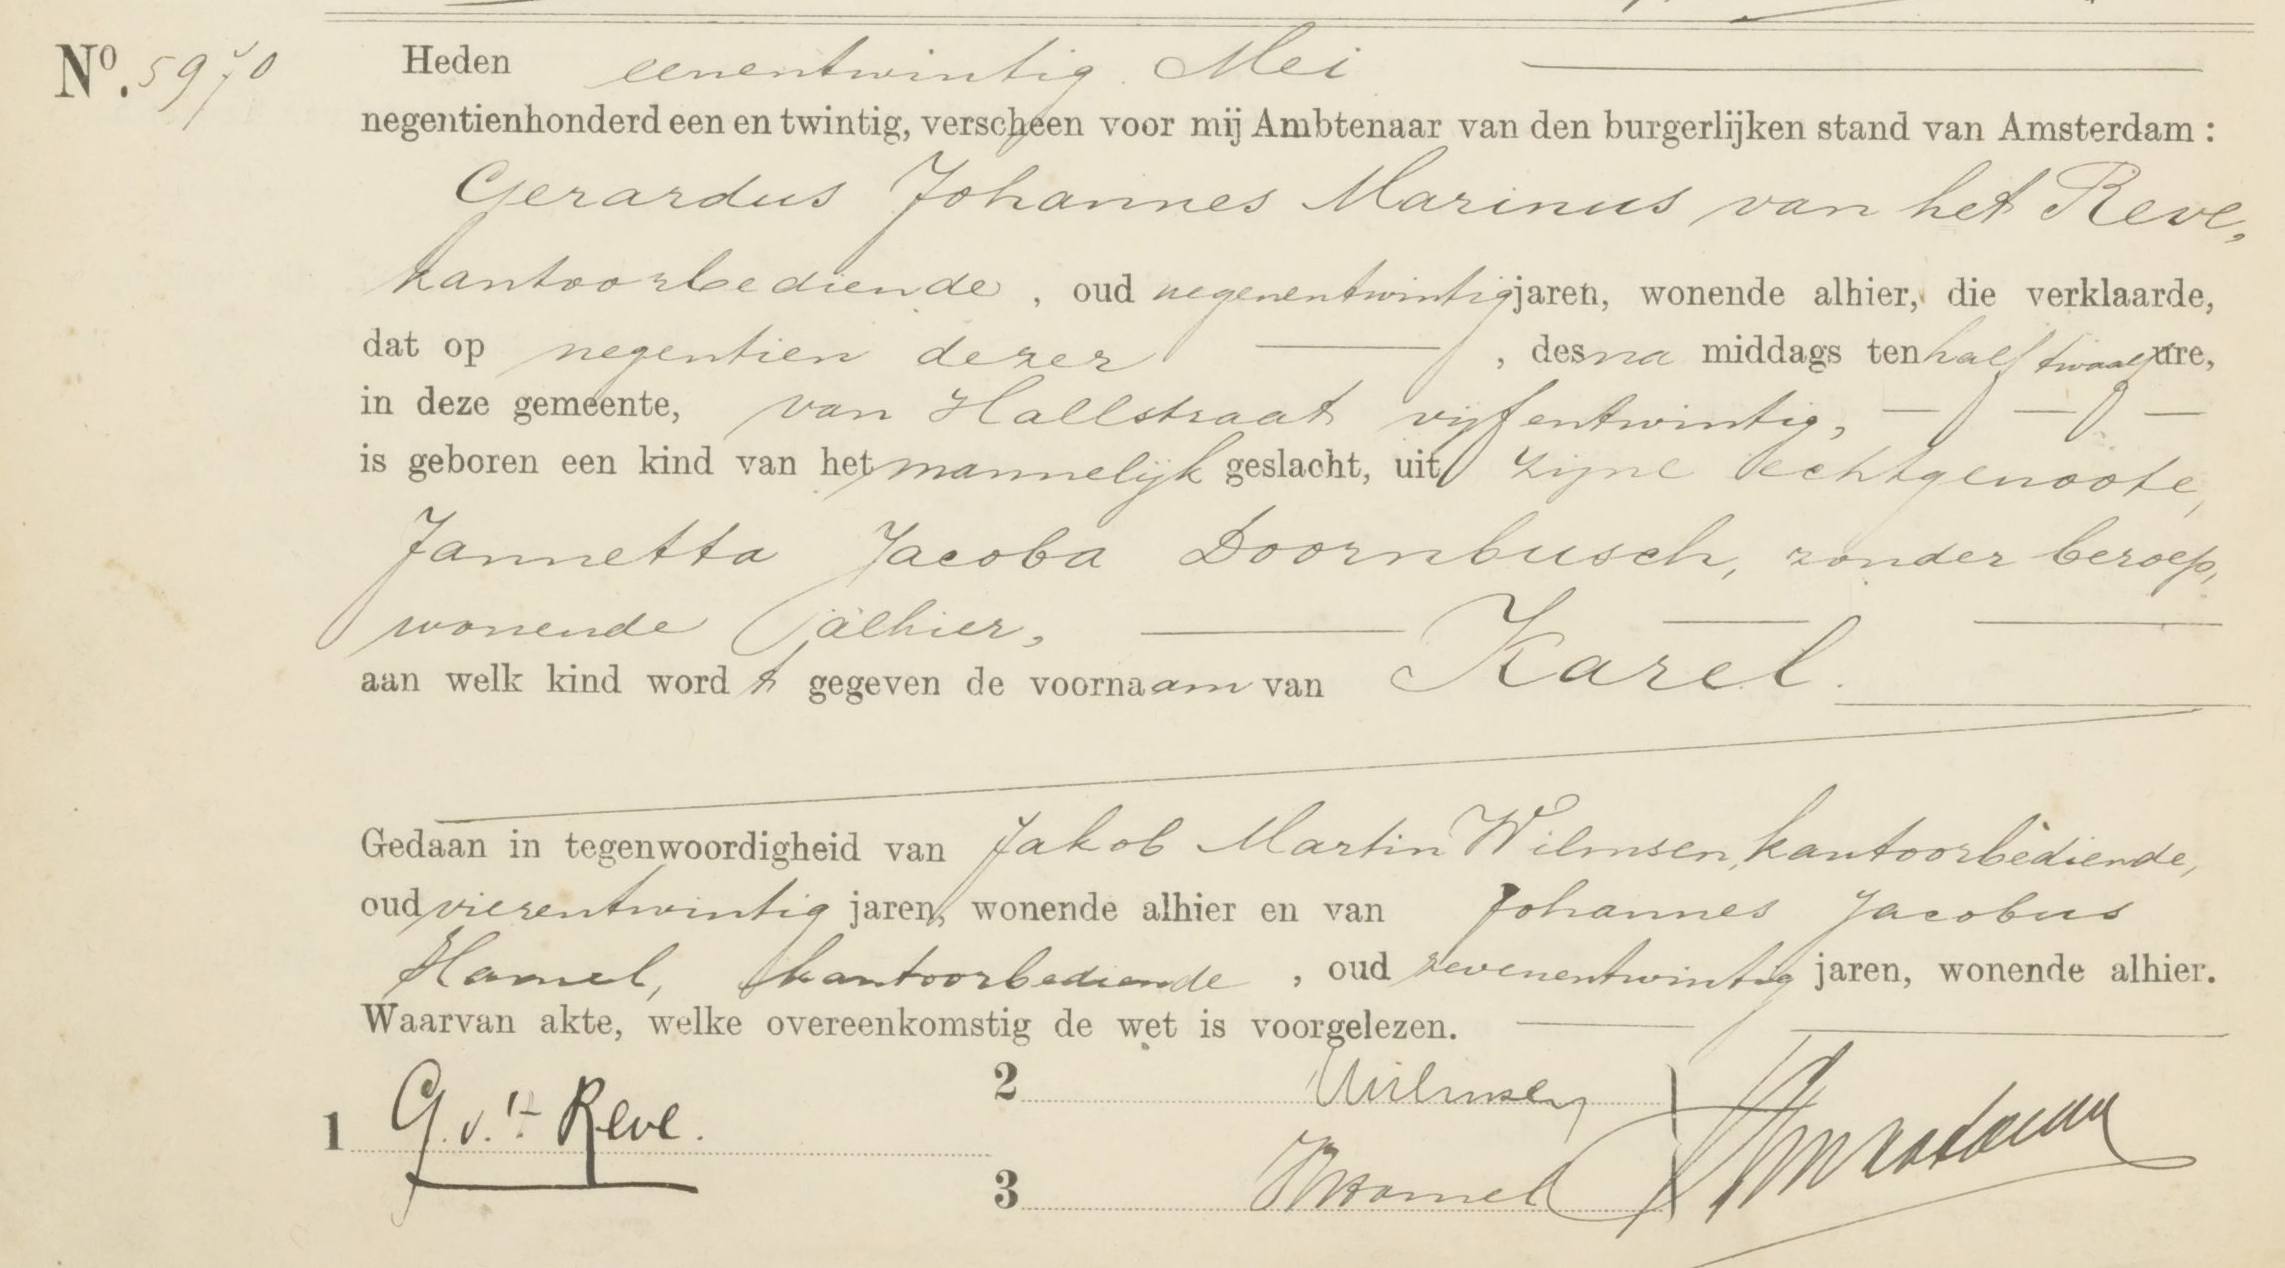 Nº. 5970
Heden eenentwintig Mei
negentienhonderd een en twintig, verscheen voor mij Ambtenaar van den burgerlijken stand van Amsterdam :
Gerardus Johannes Marinus van het Reve,
kantoorbediende , oud negenentwintig jaren, wonende alhier, die verklaarde,
dat op negentien dezer , des na middags ten half twaalf ure,
in deze gemeente, van Hallstraat vijfentwintig,
is geboren een kind van het mannelijk geslacht, uit zijne echtgenoote,
Jannetta Jacoba Doornbusch, zonder beroep,
wonende alhier,
aan welk kind wordt gegeven de voornaam van Karel.
Gedaan in tegenwoordigheid van Jakob Martin Wilmsen, kantoorbediende,
oud vierentwintig jaren, wonende alhier en van Johannes Jacobus
Hamel, kantoorbediende , oud zevenentwintig jaren, wonende alhier.
Waarvan akte, welke overeenkomstig de wet is voorgelezen.
1 G. v. 't Reve.
2 Wilmsen
3 Hamel